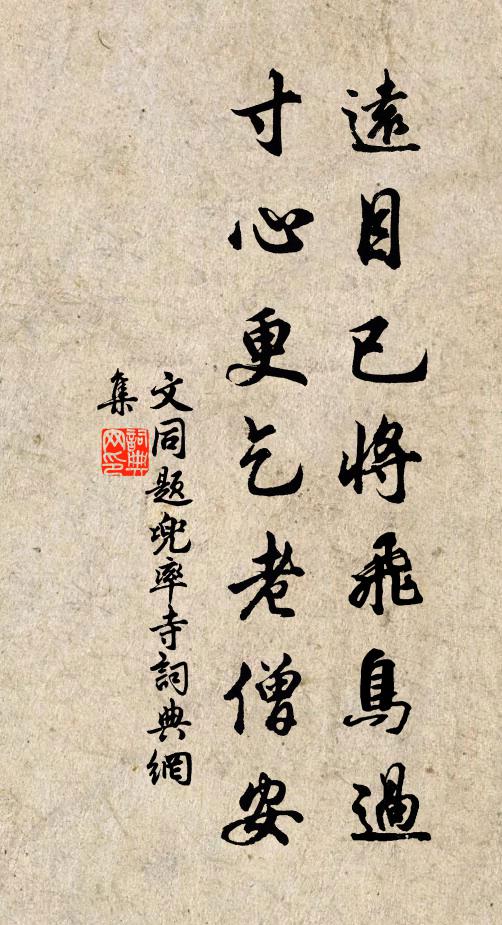 遠目已將飛鳥過
寸心更乞老僧安
文同題兜率寺詞典網
集
詞典
网印